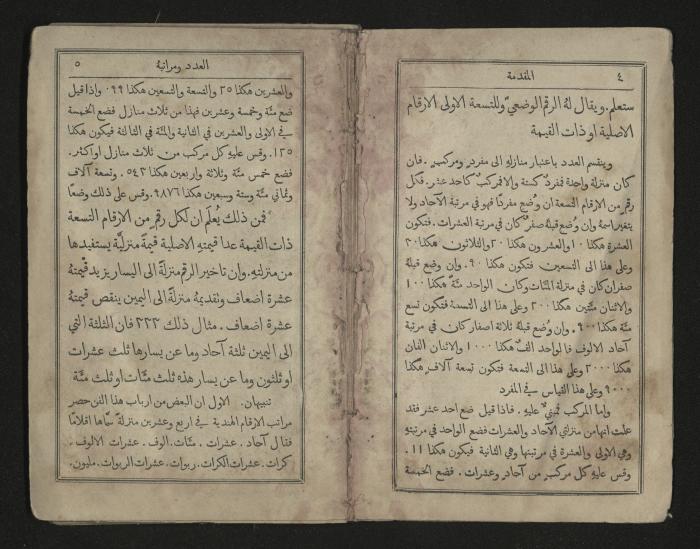 ٤
المقدمة
ستعلم. ويقال لهُ الرقم الوضعيّ وللتسعة الاولى الارقام
الاصلية او ذات القيمة
وينقسم العدد باعتبار منازلهِ الى مفردٍ ومركبٍ. فان
كان منزلة واحدة فمفردٌ كستة والا فمركبٌ كاحد عشر. فكل
رقمٍ من الارقام التسعة ان وُضع مفردًا فهو في مرتبة الآحاد ولا
يتغير اسمهُ وان وُضع قبلهُ صفرٌ كان في مرتبة العشرات. فتكون
العشرة هكذا ١٠ والعشرون هكذا ٢٠ والثلاثون هكذا ٣٠
وعلى هذا الى التسعين فتكون هكذا ٩٠. وان وضع قبلهُ
صفران كان في منزلة المئات وكان الواحد مئةً هكذا ١٠٠
والاثنان مئتين هكذا ٢٠٠ وعلى هذا الى التسعة فتكون تسع
مئة هكذا ٩٠٠. وان وُضع قبلهُ ثلاثة اصفار كان في مرتبة
آحاد الالوف فالواحد الفٌ هكذا ١٠٠٠ والاثنان الفان
هكذا ٢٠٠٠ وعلى هذا الى التسعة فتكون تسعة آلاف هكذا
٩٠٠٠ وعلى هذا القياس في المفرد
واما المركب فمبنيٌّ عليهِ. فاذا قيل ضع احد عشر فقد
علمت انها من منزلتي الآحاد والعشرات فضع الواحد في مرتبتهِ
وهي الاولى والعشرة في مرتبتها وهي الثانية فيكون هكذا ١١.
وقس عليهِ كل مركبٍ من آحادٍ وعشرات. فضع الخمسة
العدد ومراتبهُ
٥
والعشرين هكذا ٢٥ والتسعة والتسعين هكذا ٩٩. واذا قيل
ضع مئة وخمسة وعشرين فهذا من ثلاث منازل فضع الخمسة
في الاولى والعشرين في الثانية والمئة في الثالثة فيكون هكذا
١٢٥. وقس عليهِ كل مركب من ثلاث منازل او اكثر.
فضع خمس مئة وثلاثة واربعين هكذا ٥٤٣. وتسعة آلاف
وثماني مئة وستة وسبعين هكذا ٩٨٧٦ وقس على ذلك وضعًا
فمن ذلك يُعلَم ان لكل رقمٍ من الارقام التسعة
ذات القيمة عدا قيمتهِ الاصلية قيمةً منزليَّة يستفيدها
من منزلتهِ. وان تاخير الرقم منزلةً الى اليسار يزيد قيمتهُ
عشرة اضعاف وتقديمهُ منزلةً الى اليمين ينقص قيمتهُ
عشرة اضعاف. مثال ذلك ٣٣٣ فان الثلثة التي
الى اليمين ثلثة آحاد وما عن يسارها ثلث عشرات
او ثلثون وما عن يسار هذه ثلث مئات او ثلث مئة
تنبيهان. الاول ان البعض من ارباب هذا الفن حصر
مراتب الارقام الهندية في اربع وعشرين منزلةً سمَّاها اقلامًا
فقال آحاد. عشرات. مئات. الوف. عشرات الالوف.
كرات. عشرات الكرات. ربوات. عشرات الربوات. مليون.